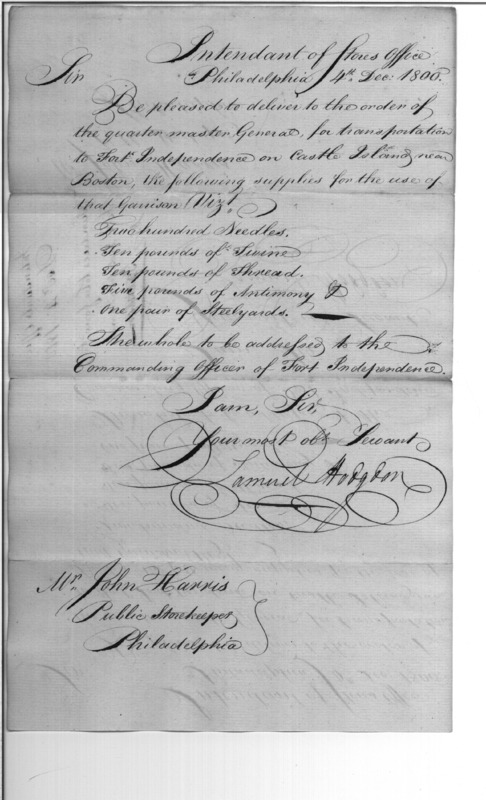 Intendant of Stores Office
Sir Philadelphia 4th. Dec: 1800.
Be pleased to deliver to the order of
the quarter master General, for transportation
to Fort Independence on Castle Island, near
Boston, the following supplies for the use of
that Garrison Vizt.
Two hundred Needles.
Ten pounds of Twine
Ten pounds of Thread.
Five pounds of Antimony &
One pair of Steelyards.
The whole to be addressed to the
Commanding Officer of Fort Independence.
I am, Sir,
Your most obt. Servant
Samuel Hodgdon
Mr. John Harris
Public Storekeeper
Philadelphia